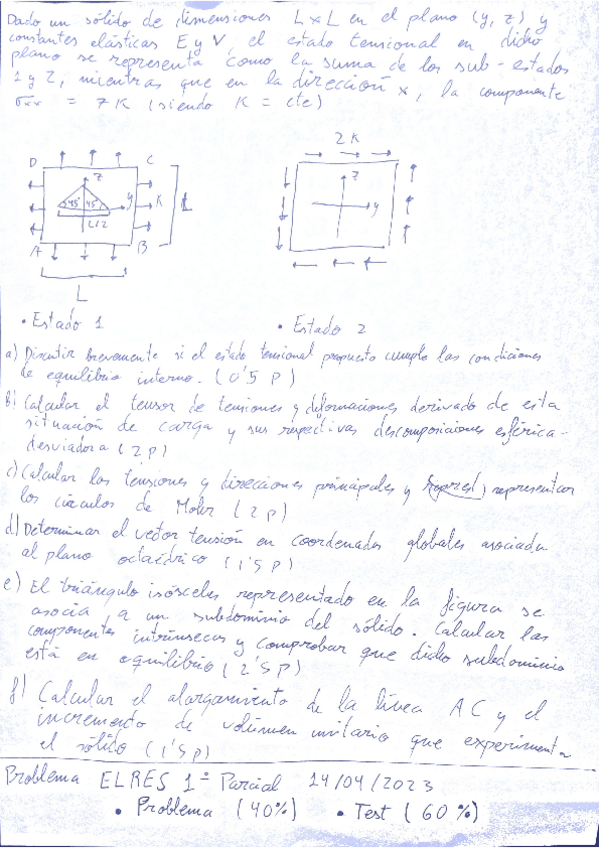 Dado un sólido de dimensiones L x L en el plano (y, z) y
constantes elásticas E y V, el estado tensional en dicho
plano se representa como la suma de los sub-estados
1 y 2, mientras que en la dirección x, la componente
σxx = 7K (siendo K = cte)
2 K
D
C
z
z
45°
45°
y
K
L
y
L/2
A
B
L
• Estado 1
• Estado 2
a) Discutir brevemente si el estado tensional propuesto cumple las condiciones
de equilibrio interno. (0'5 p)
b) Calcular el tensor de tensiones y deformaciones derivado de esta
situación de carga y sus respectivas descomposiciones esférica-
desviadora (2 p)
c) Calcular las tensiones y direcciones principales y representar
los círculos de Mohr (2 p)
d) Determinar el vector tensión en coordenadas globales asociada
al plano octaédrico (1'5 p)
e) El triángulo isósceles representado en la figura se
asocia a un subdominio del sólido. Calcular las
componentes intrínsecas y comprobar que dicho subdominio
está en equilibrio (2'5 p)
f) Calcular el alargamiento de la línea AC y el
incremento de volumen unitario que experimenta
el sólido (1'5 p)
Problema ELRES 1º Parcial 14/04/2023
• Problema (40%) • Test (60%)